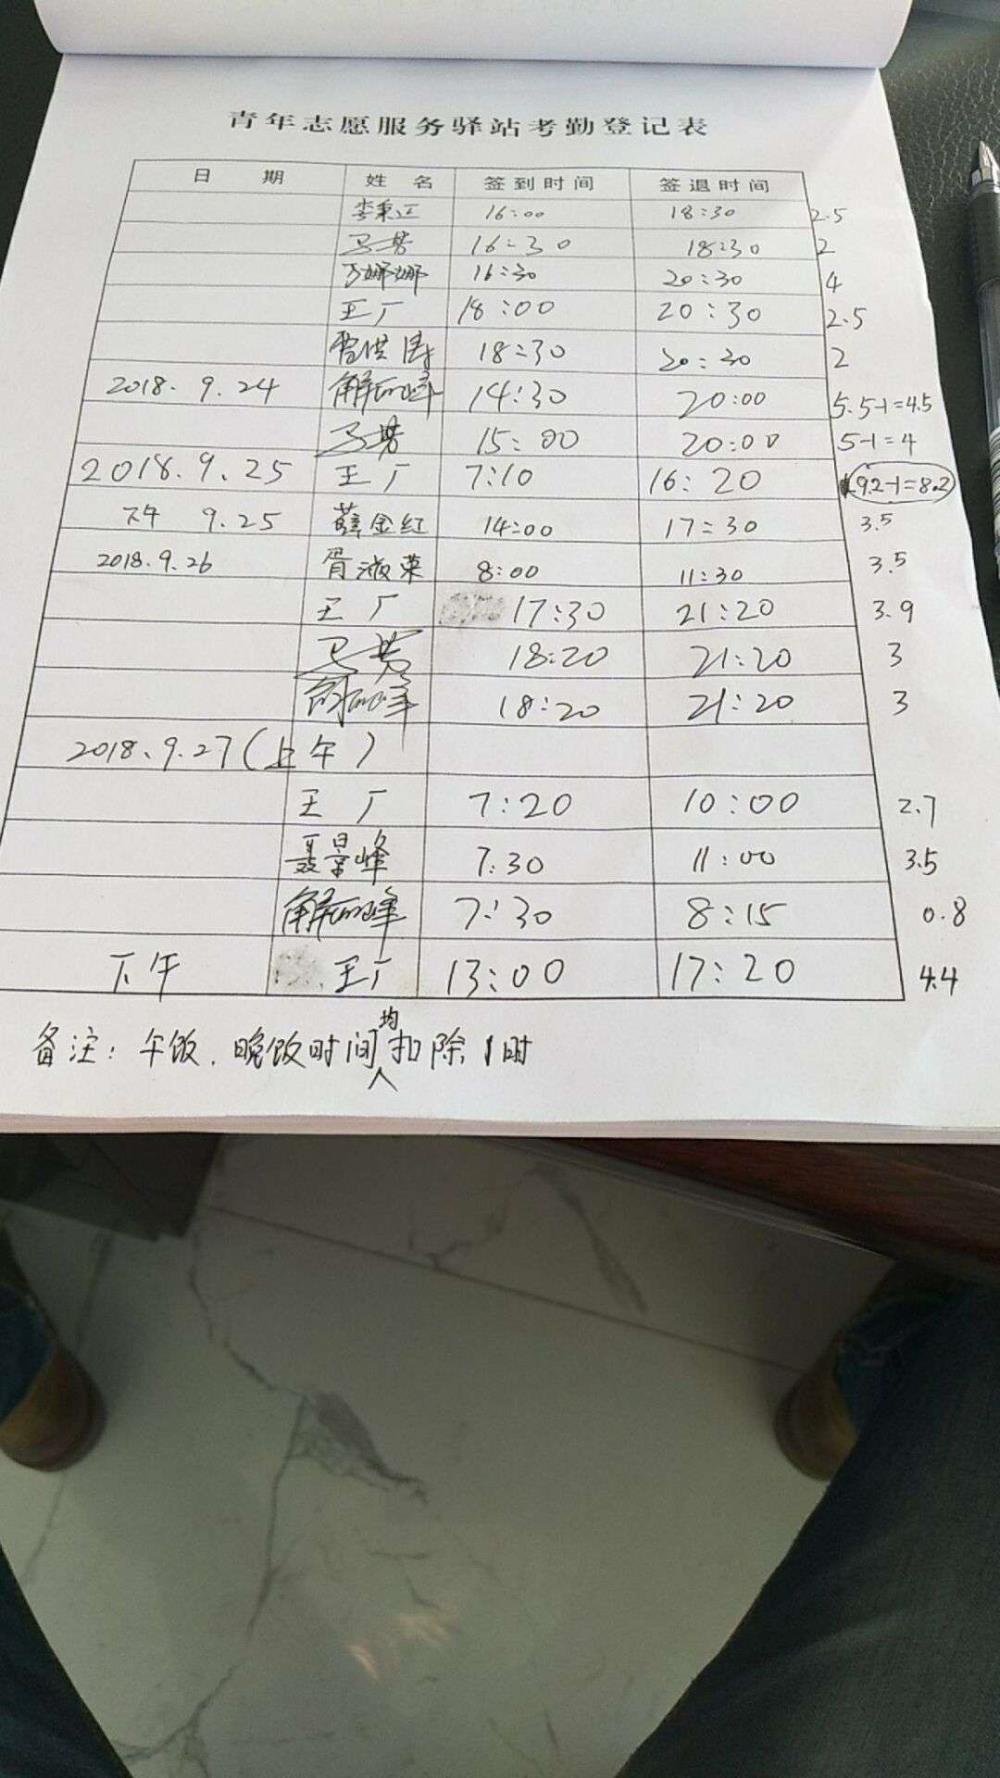 青年志愿服务驿站考勤登记表
日 期 姓 名 签到时间 签退时间
李秉江 16:00 18:30 2.5
16:30 18:30 2
娜娜 16:30 20:30 4
王厂 18:00 20:30 2.5
18:30 20:30 2
2018.9.24 解 峰 14:30 20:00 5.5-1=4.5
15:00 20:00 5-1=4
2018.9.25 王厂 7:10 16:20 9.2-1=8.2
下午 9.25 薛金红 14:00 17:30 3.5
2018.9.26 胥淑荣 8:00 11:30 3.5
王厂 17:30 21:20 3.9
18:20 21:20 3
18:20 21:20 3
2018.9.27(上午)
王厂 7:20 10:00 2.7
聂景峰 7:30 11:00 3.5
解 峰 7:30 8:15 0.8
下午 王厂 13:00 17:20 4.4
备注：午饭、晚饭时间均扣除1时